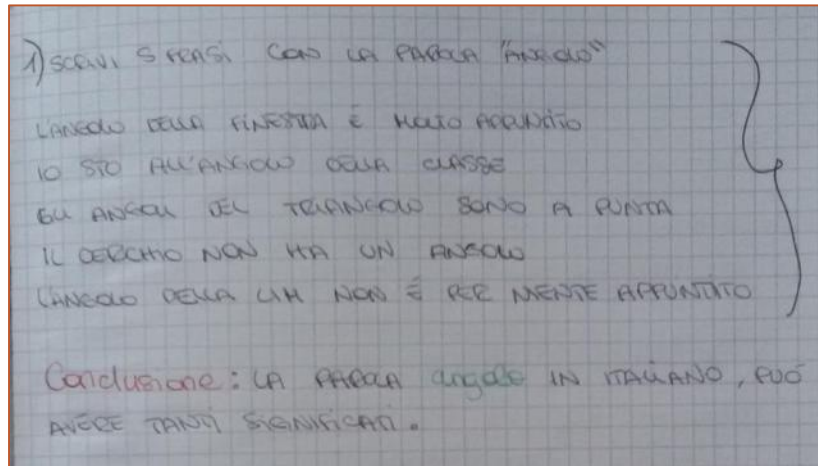 1) SCRIVI 5 FRASI CON LA PAROLA "ANGOLO"
L'ANGOLO DELLA FINESTRA È MOLTO APPUNTITO
IO STO ALL'ANGOLO DELLA CLASSE
GLI ANGOLI DEL TRIANGOLO SONO A PUNTA
IL CERCHIO NON HA UN ANGOLO
L'ANGOLO DELLA LIM NON È PER NIENTE APPUNTITO
Conclusione: LA PAROLA angolo IN ITALIANO, PUÓ
AVERE TANTI SIGNIFICATI.